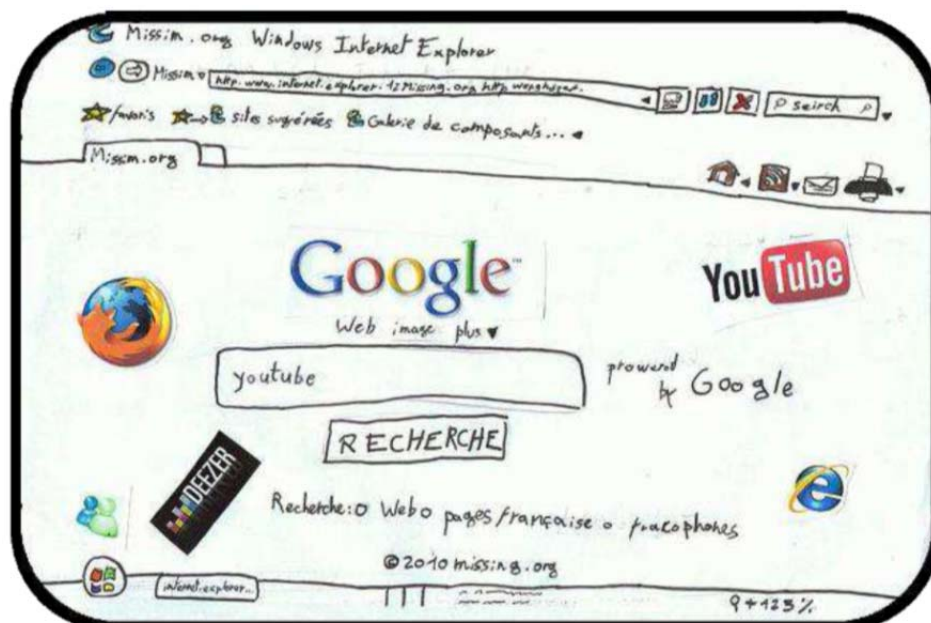 Missim.org Windows Internet Explorer
Missim
http.www.internet.explorer.12Missing.org http
P seirch
favoris sites suggérées Galerie de composants...
Missm.org
Google™
YouTube
Web image plus
youtube
prowered
by Google
RECHERCHE
DEEZER
Recherche: Web pages française fracophones
© 2010 missing.org
internet.explorer...
+ 125 %